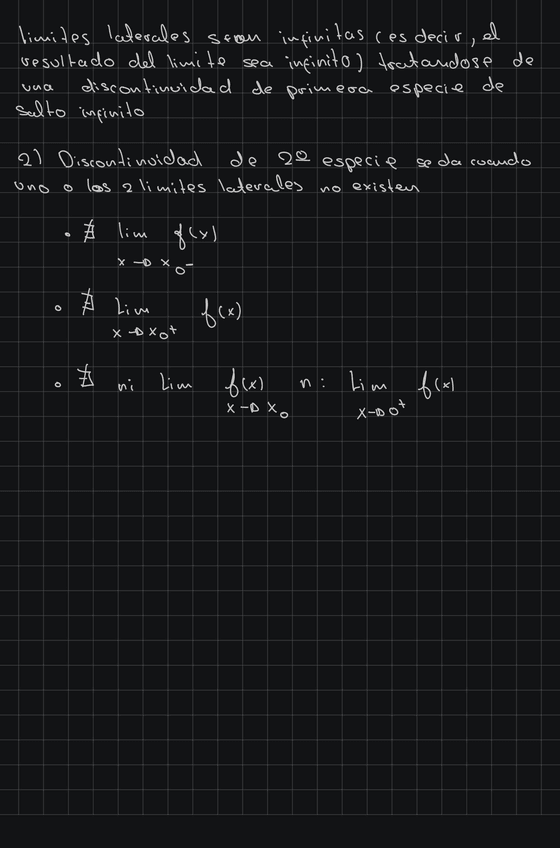 limites laterales sean infinitas (es decir, el
resultado del limite sea infinito) tratandose de
una discontinuidad de primera especie de
salto infinito
2) Discontinuidad de 2º especie se da cuando
uno o los 2 limites laterales no existen
• ∄ lim f(x)
x→x₀⁻
• ∄ Lim f(x)
x→x₀⁺
• ∄ ni Lim f(x) ni Lim f(x)
x→x₀ x→0⁺